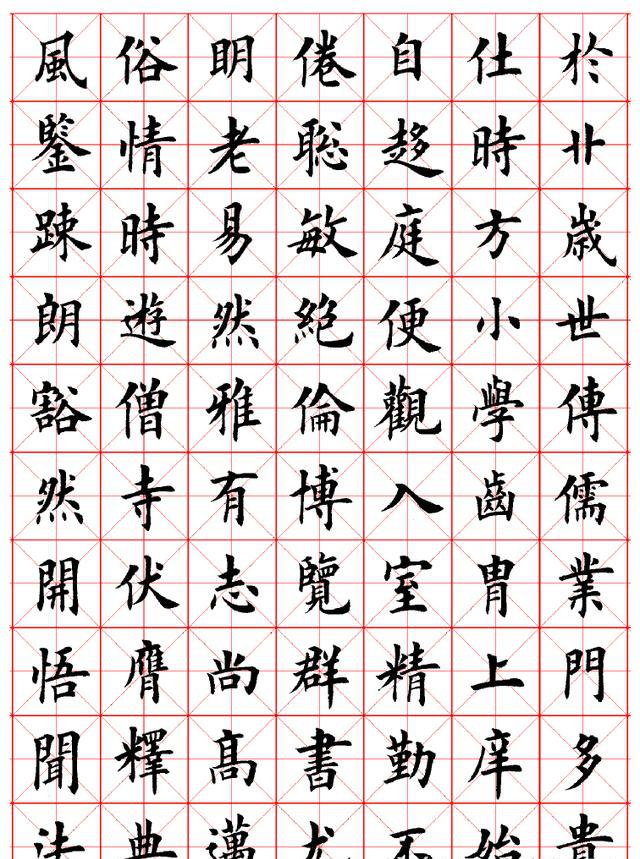 於廿歲世傳儒業門多貴
仕時方小學齒胄上庠始
自趍庭便觀入室精勤不
倦聦敏絶倫博覽群書尤
眀老易然雅有志尚髙邁
俗情時遊僧寺伏膺釋典
風鑒踈朗豁然開悟聞法